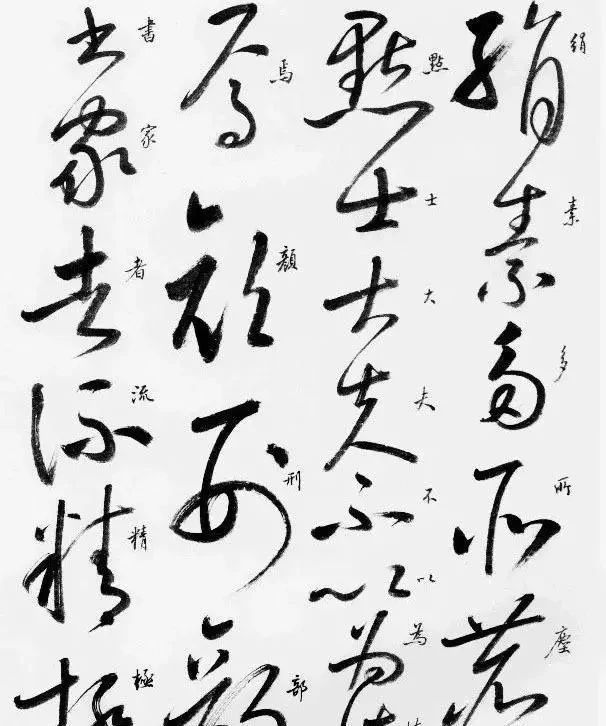 絹素多所塵
點士大夫不以為
焉顏刑部
書家者流精極